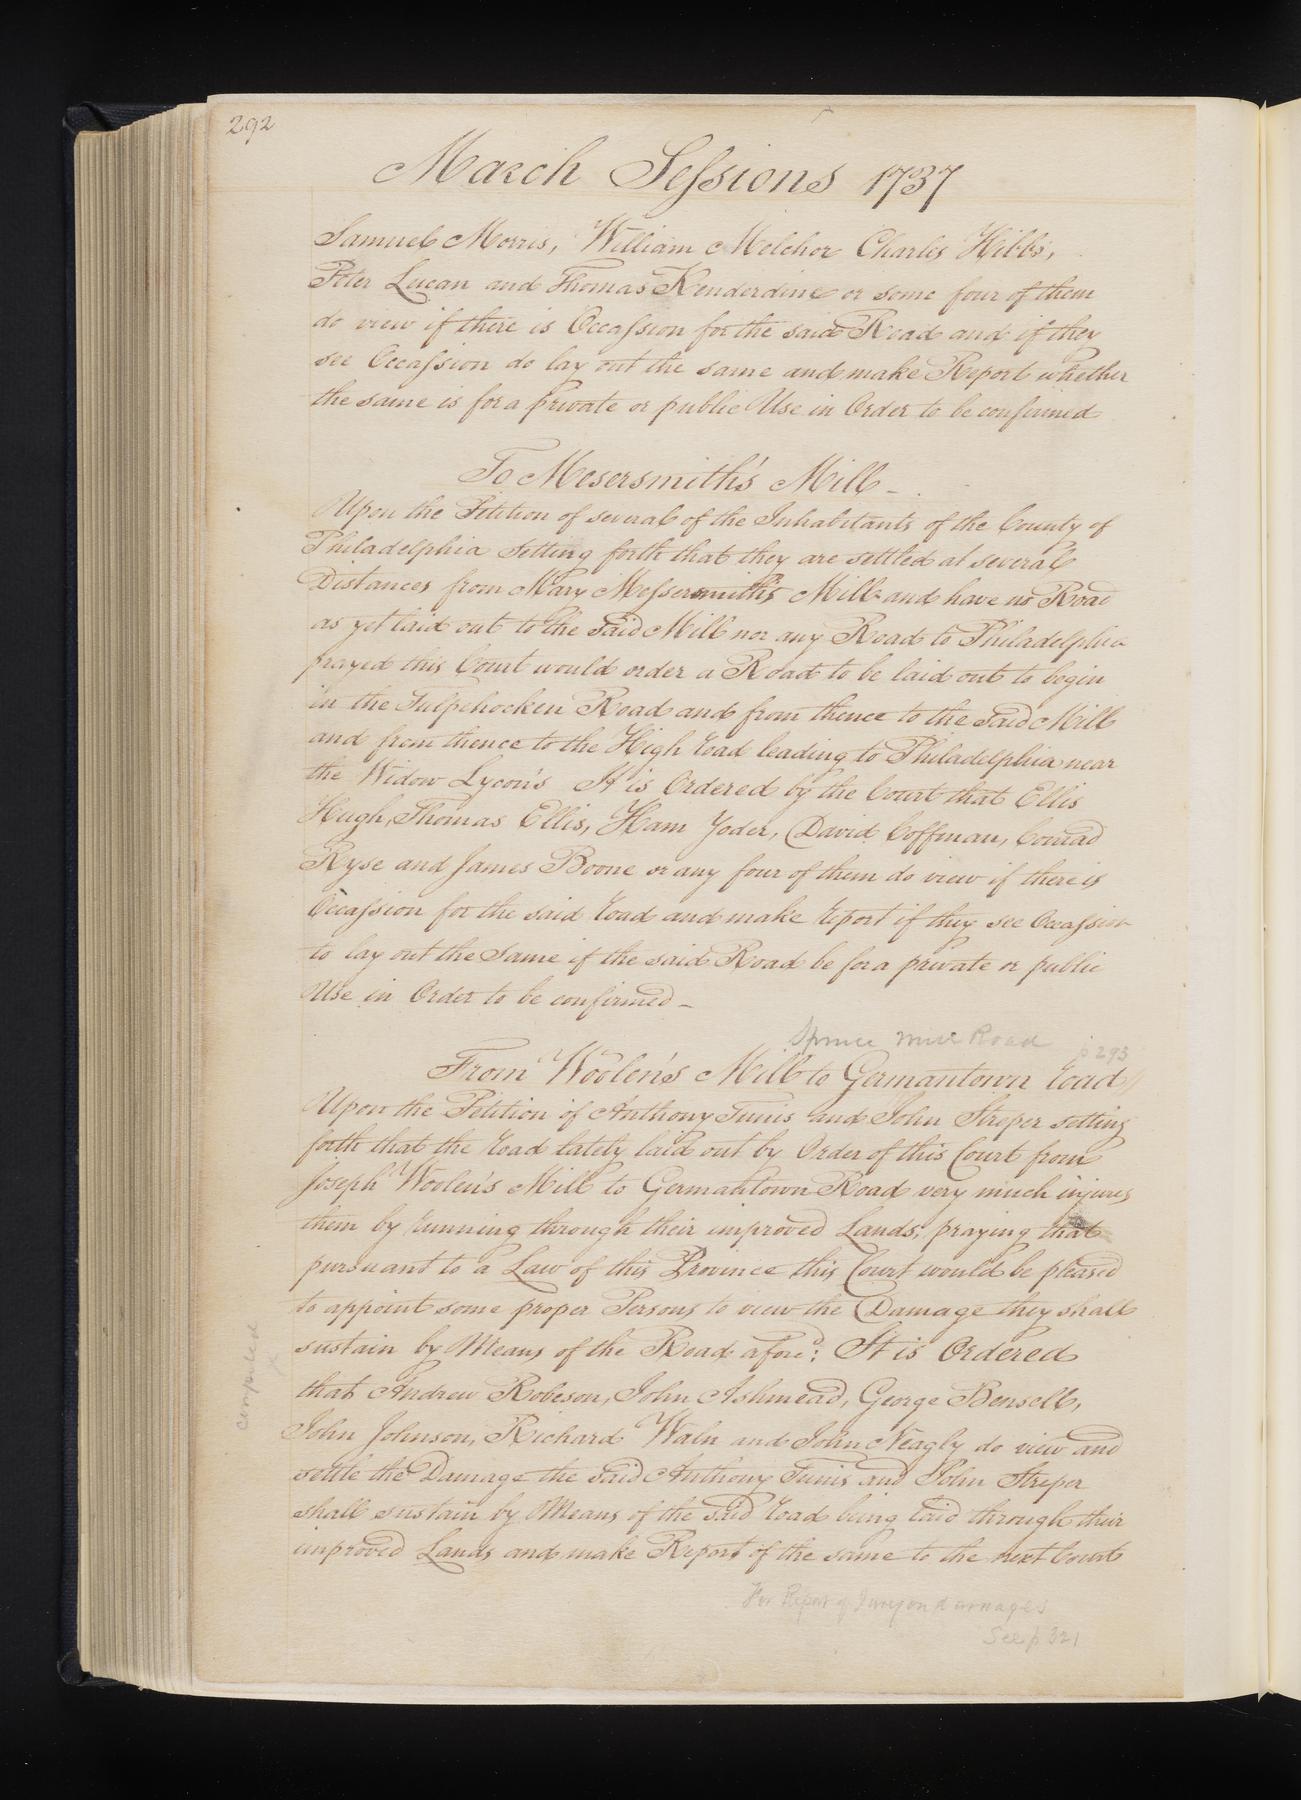 292
March Sessions 1737
Samuel Morris, William Melchor Charles Hibbs,
Peter Lucan and Thomas Kenderdine or some four of them
do view if there is Occassion for the said Road and if they
see Occassion do lay out the same and make Report whether
the same is for a private or public Use in Order to be confirmed
To Mesersmith's Mill -
Upon the Petition of several of the Inhabitants of the County of
Philadelphia setting forth that they are settled at several
Distances from Mary Messersmith's Mill and have no Road
as yet laid out to the said Mill nor any Road to Philadelphia
prayed this Court would order a Road to be laid out to begin
in the Tulpehocken Road and from thence to the said Mill
and from thence to the High road leading to Philadelphia near
the Widow Lycon's It is Ordered by the Court that Ellis
Hugh, Thomas Ellis, Ham Yoder, David Coffman, Conrad
Ryse and James Boone or any four of them do view if there is
Occassion for the said road and make report if they see Occassion
to lay out the Same if the said Road be for a private or public
Use in Order to be confirmed -
Spruce Mill Road p 293
From Woolen's Mill to Germantown road
Upon the Petition of Anthony Tunis and John Streper setting
forth that the road lately laid out by Order of this Court from
Joseph Woolen's Mill to Germantown Road very much injures
them by running through their improved Lands, praying that
pursuant to a Law of this Province this Court would be pleased
to appoint some proper Persons to view the Damage they shall
sustain by Means of the Road afore.d: It is Ordered
that Andrew Robeson, John Ashmead, George Bensell,
John Johnson, Richard Waln and John Neagly do view and
settle the Damage the said Anthony Tunis and John Streper
shall sustain by Means of the said road being laid through their
improved Lands and make Report of the same to the next Court
For Report of Jury on damages
See p 321
compiled